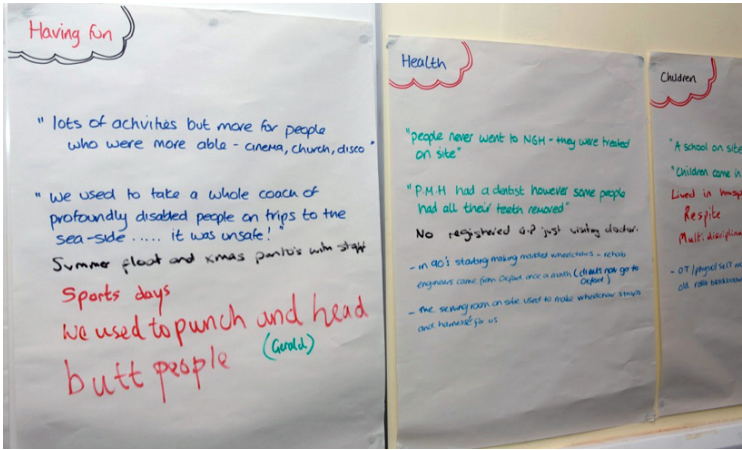 Having fun
"lots of activities but more for people
who were more able - cinema, church, disco"
"we used to take a whole coach of
profoundly disabled people on trips to the
sea-side ...... it was unsafe!"
Summer float and xmas panto's with staff
Sports days
We used to punch and head
(Gerald)
butt people
Health
"people never went to NGH - they were treated
on site"
"P.M.H had a dentist however some people
had all their teeth removed"
No registered G.P just visiting doctor.
- in 90's starting making moulded wheelchairs - rehab
engineers came from Oxford once a month (clients now go to
Oxford)
- The sewing room on site used to make wheelchair straps
and harnesses for us
Children
"A school on site
"Children came in
Lived in
Respite
Multi.
- OT/physio
old